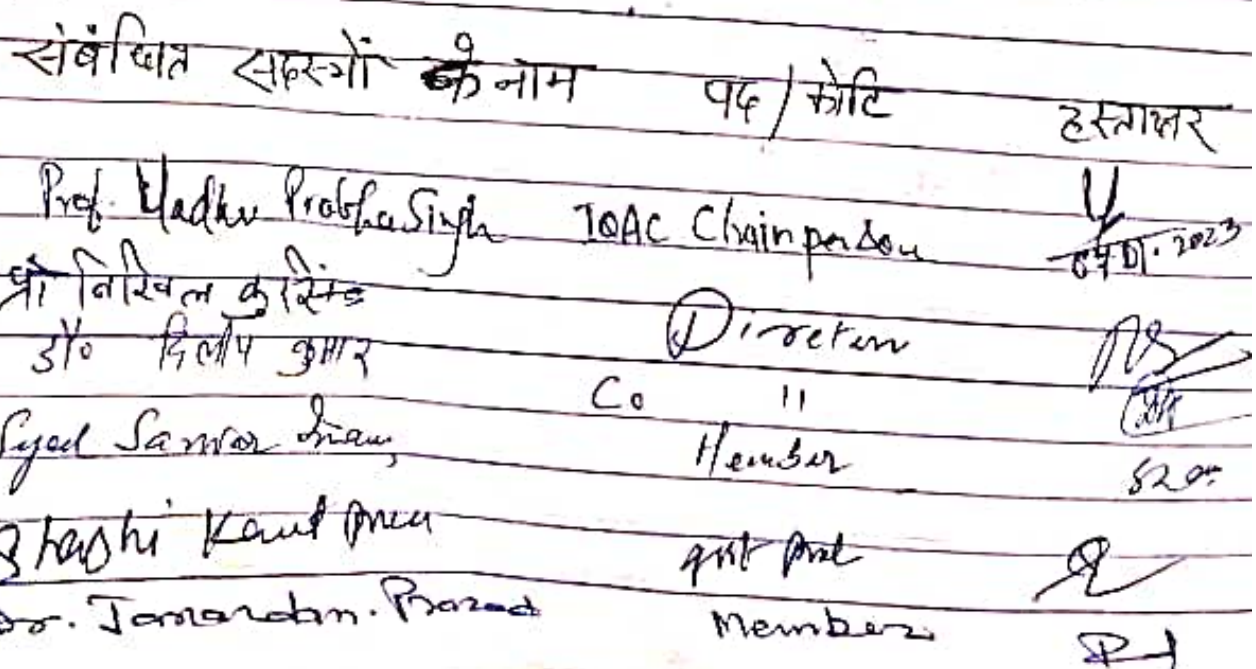 संबंधित सदस्यों के नाम पद / कोटि हस्ताक्षर
Prof. Madhu Prabha Singh IQAC Chairperson
प्रो निखिल कु सिंह Director
डॉ० दिलीप कुमार Co "
Syed Samar Imam, Member
Shashi Kant
Dr. Janardan. Prasad Member